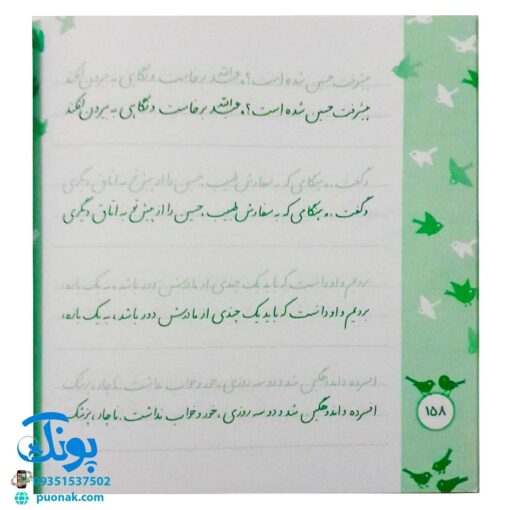 پیشرفت حسین شده است؟. عبدالله برخاست و نگاهی به بیرون افکند
پیشرفت حسین شده است؟. عبدالله برخاست و نگاهی به بیرون افکند
و گفت:. هنگامی که به سفارش طبیب، حسین را از پیش تو به اتاق دیگری
و گفت:. هنگامی که به سفارش طبیب، حسین را از پیش تو به اتاق دیگری
بردیم و او دانست که باید یک چندی از مادرش دور باشد، به یک باره،
بردیم و او دانست که باید یک چندی از مادرش دور باشد، به یک باره،
افسرده و اندوهگین شد و دو سه روزی، خور و خواب نداشت. ناچار، پزشک
افسرده و اندوهگین شد و دو سه روزی، خور و خواب نداشت. ناچار، پزشک
۱۵۸
پونک
09351537502
puonak.com